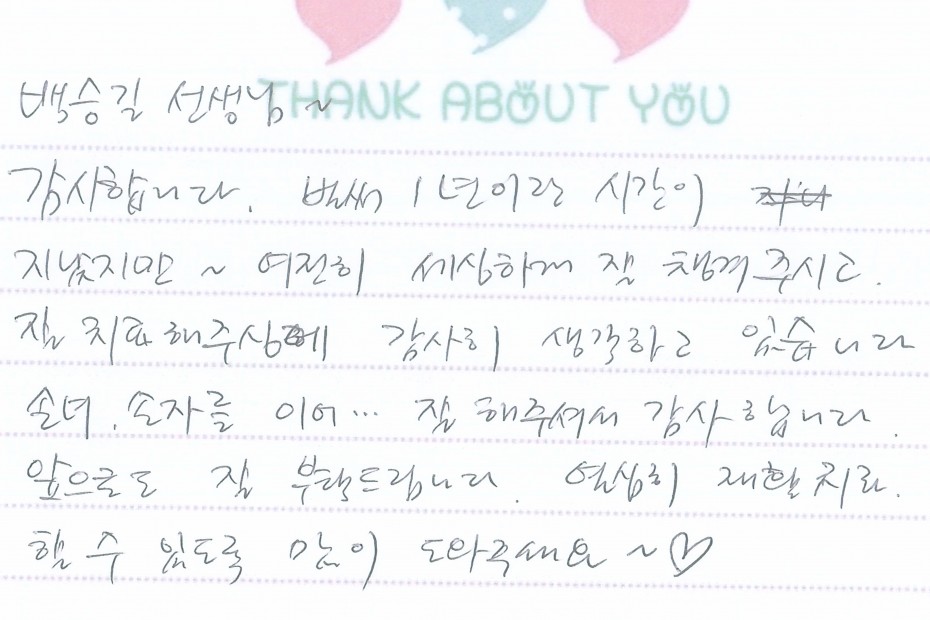 THANK ABOUT YOU
백승길 선생님~
감사합니다. 벌써 1년이란 시간이
지났지만 ~ 여전히 세심하게 잘 챙겨주시고.
잘 치료해주심에 감사히 생각하고 있습니다
손녀, 손자를 이어... 잘 해주셔서 감사합니다.
앞으로도 잘 부탁드립니다. 열심히 재활치료.
할 수 있도록 많이 도와주세요~♡